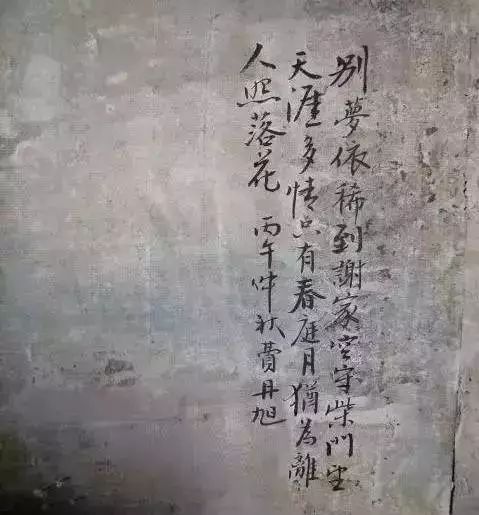 別夢依稀到謝家空守柴門望
天涯多情只有春庭月猶為離
人照落花 丙午仲秋費丹旭